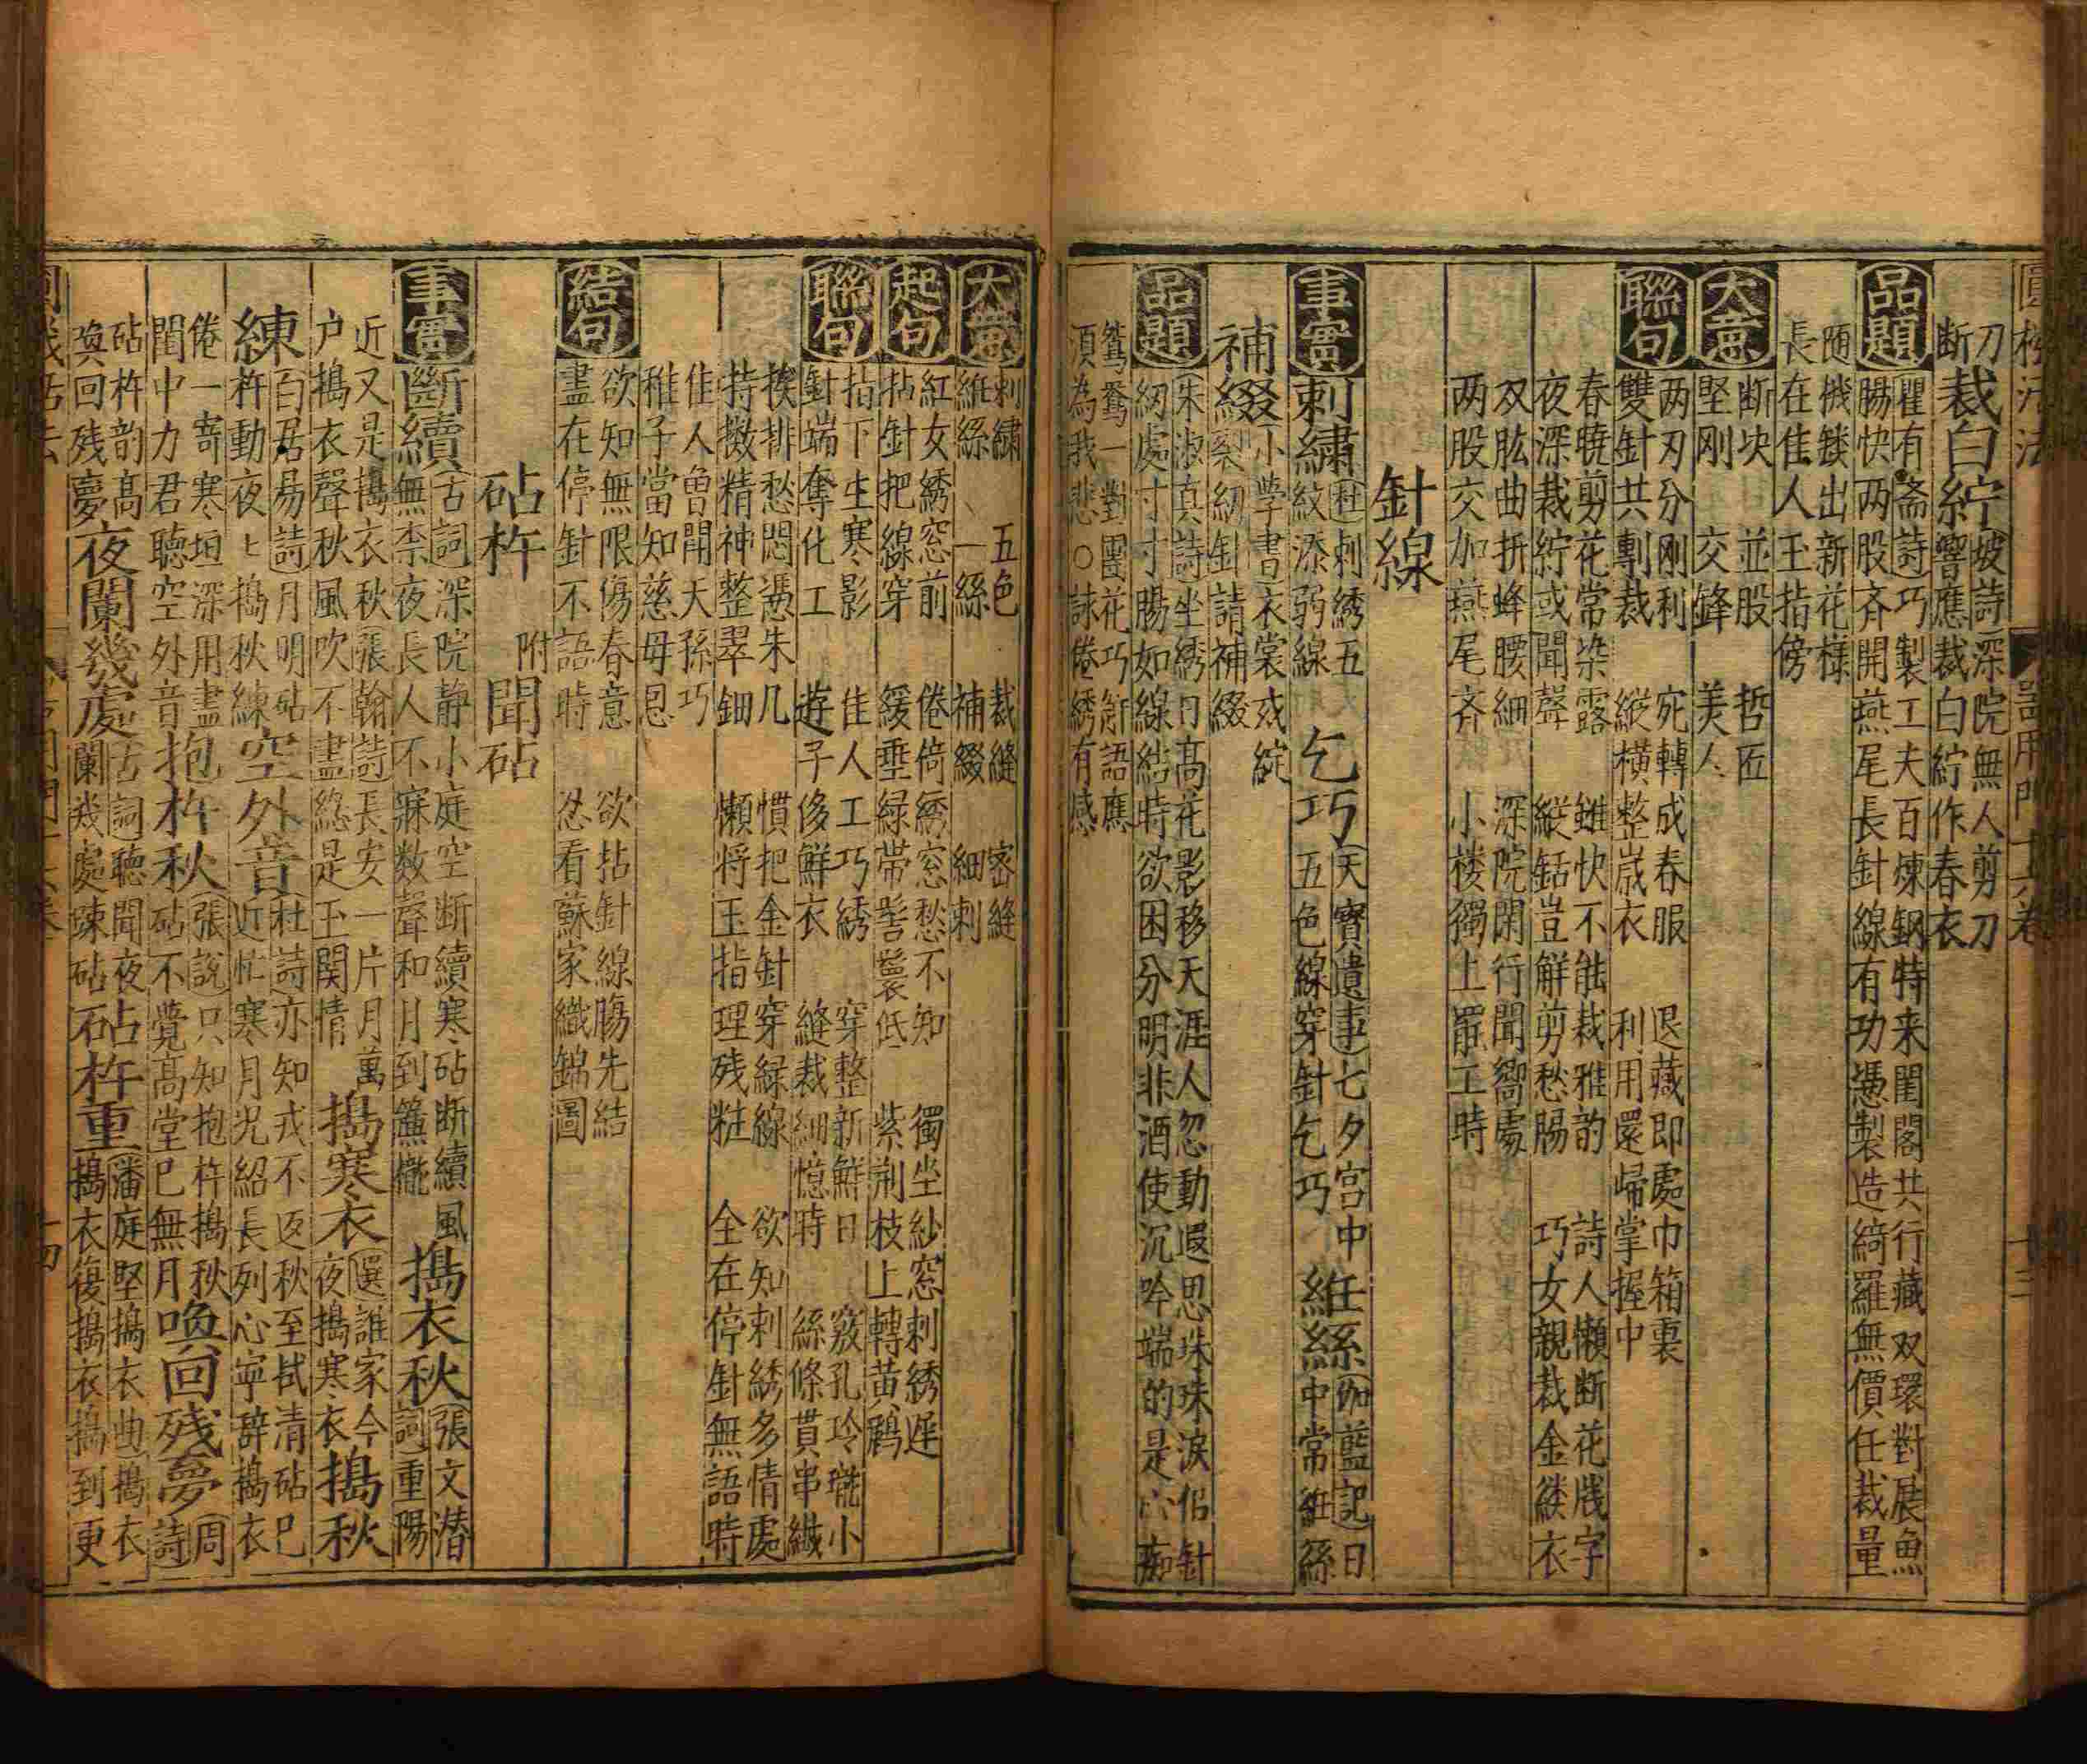 圓機活法
器用門十六卷
十三
刀
断裁白紵坡詩深院無人剪刀
響應裁白紵作春衣
品題
瞿有斎詩巧製工夫百煉鋼特来閨閣共行藏双環對展魚
腸快两股斉開燕尾長針線有功憑製造綺羅無價任裁量
随機鏤出新花樣
長在佳人玉指傍
大意
断块 並股 哲匠
堅剛 交鋒 美人
聯句
两刃分剛利 宛轉成春服 退藏即處巾箱裏
雙針共剸裁 縱横整歳衣 利用還歸掌握中
春暁剪花常染露 雖快不能裁雅韵 詩人懒断花牋字
夜深裁紵或聞聲 縱銛豈解剪愁腸 巧女親裁金縷衣
双肱曲折蜂腰細 深院閑行聞嚮處
两股交加燕尾斉 小楼獨上罷工時
針線
事實
刺繡杜刺綉五
紋添弱線
乞巧天寳遺事七夕宫中任
五色線穿針乞巧
維絲伽藍記日
中常維絲
補綴小學書衣裳㦯綻
裂紉針請補綴
品題
朱淑真詩坐綉日高花影移天涯人忽動遐思珠珠淚侶針
紉處寸寸腸如線結時欲困分明非酒使沉吟端的是痴
鴛鴦一對團花巧觧語應
須為我悲○詠倦綉有感
大意
刺繡 五色 裁縫 密縫
維絲 一絲 補綴 細刺
起句
紅女綉窓前 倦倚綉窓愁不知 獨坐紗窓刺綉遲
拈針把線穿 緩垂緑帶髻鬟低 紫荆枝上轉黄鸝
聯句
指下生寒影 佳人工巧綉 穿整新鮮日 竅孔玲瓏小
針端奪化工 遊子侈鮮衣 縫裁細憶時 絲條貫串纎
挨排愁悶憑朱几 慣把金針穿緑線 欲知刺綉多情處
持撒精神整翠鈿 懶将玉指理残粧 全在停針無語時
佳人曾閗天孫巧
稚子當知慈母恩
結句
欲知無限傷春意 欲拈針線腸先結
盡在停針不語時 忍看蘇家織錦圖
砧杵 附聞砧
事實
斷續古詞深院静小庭空断續寒砧断續風
無柰夜長人不寐数聲和月到簾櫳
搗衣秋張文潜
詞重陽
近又是搗衣秋張翰詩長安一片月萬
户搗衣聲秋風吹不盡総是玉関情
搗寒衣選誰家今
夜搗寒衣
搗秋
練百居易詩月明砧
杵動夜匕搗秋練
空外音杜詩亦知戎不返秋至拭清砧已
近忙寒月况紹長列心寧辞搗衣
倦一寄寒垣深用盡
閨中力君聴空外音
抱杵秋張說只知抱杵搗秋
砧不覺高堂已無月
喚回残夢周
詩
砧杵韵高
喚回残夢
夜闌幾處古詞聴聞夜
闌幾處踈砧
砧杵重潘庭堅搗衣曲搗衣
搗衣復搗衣搗到更